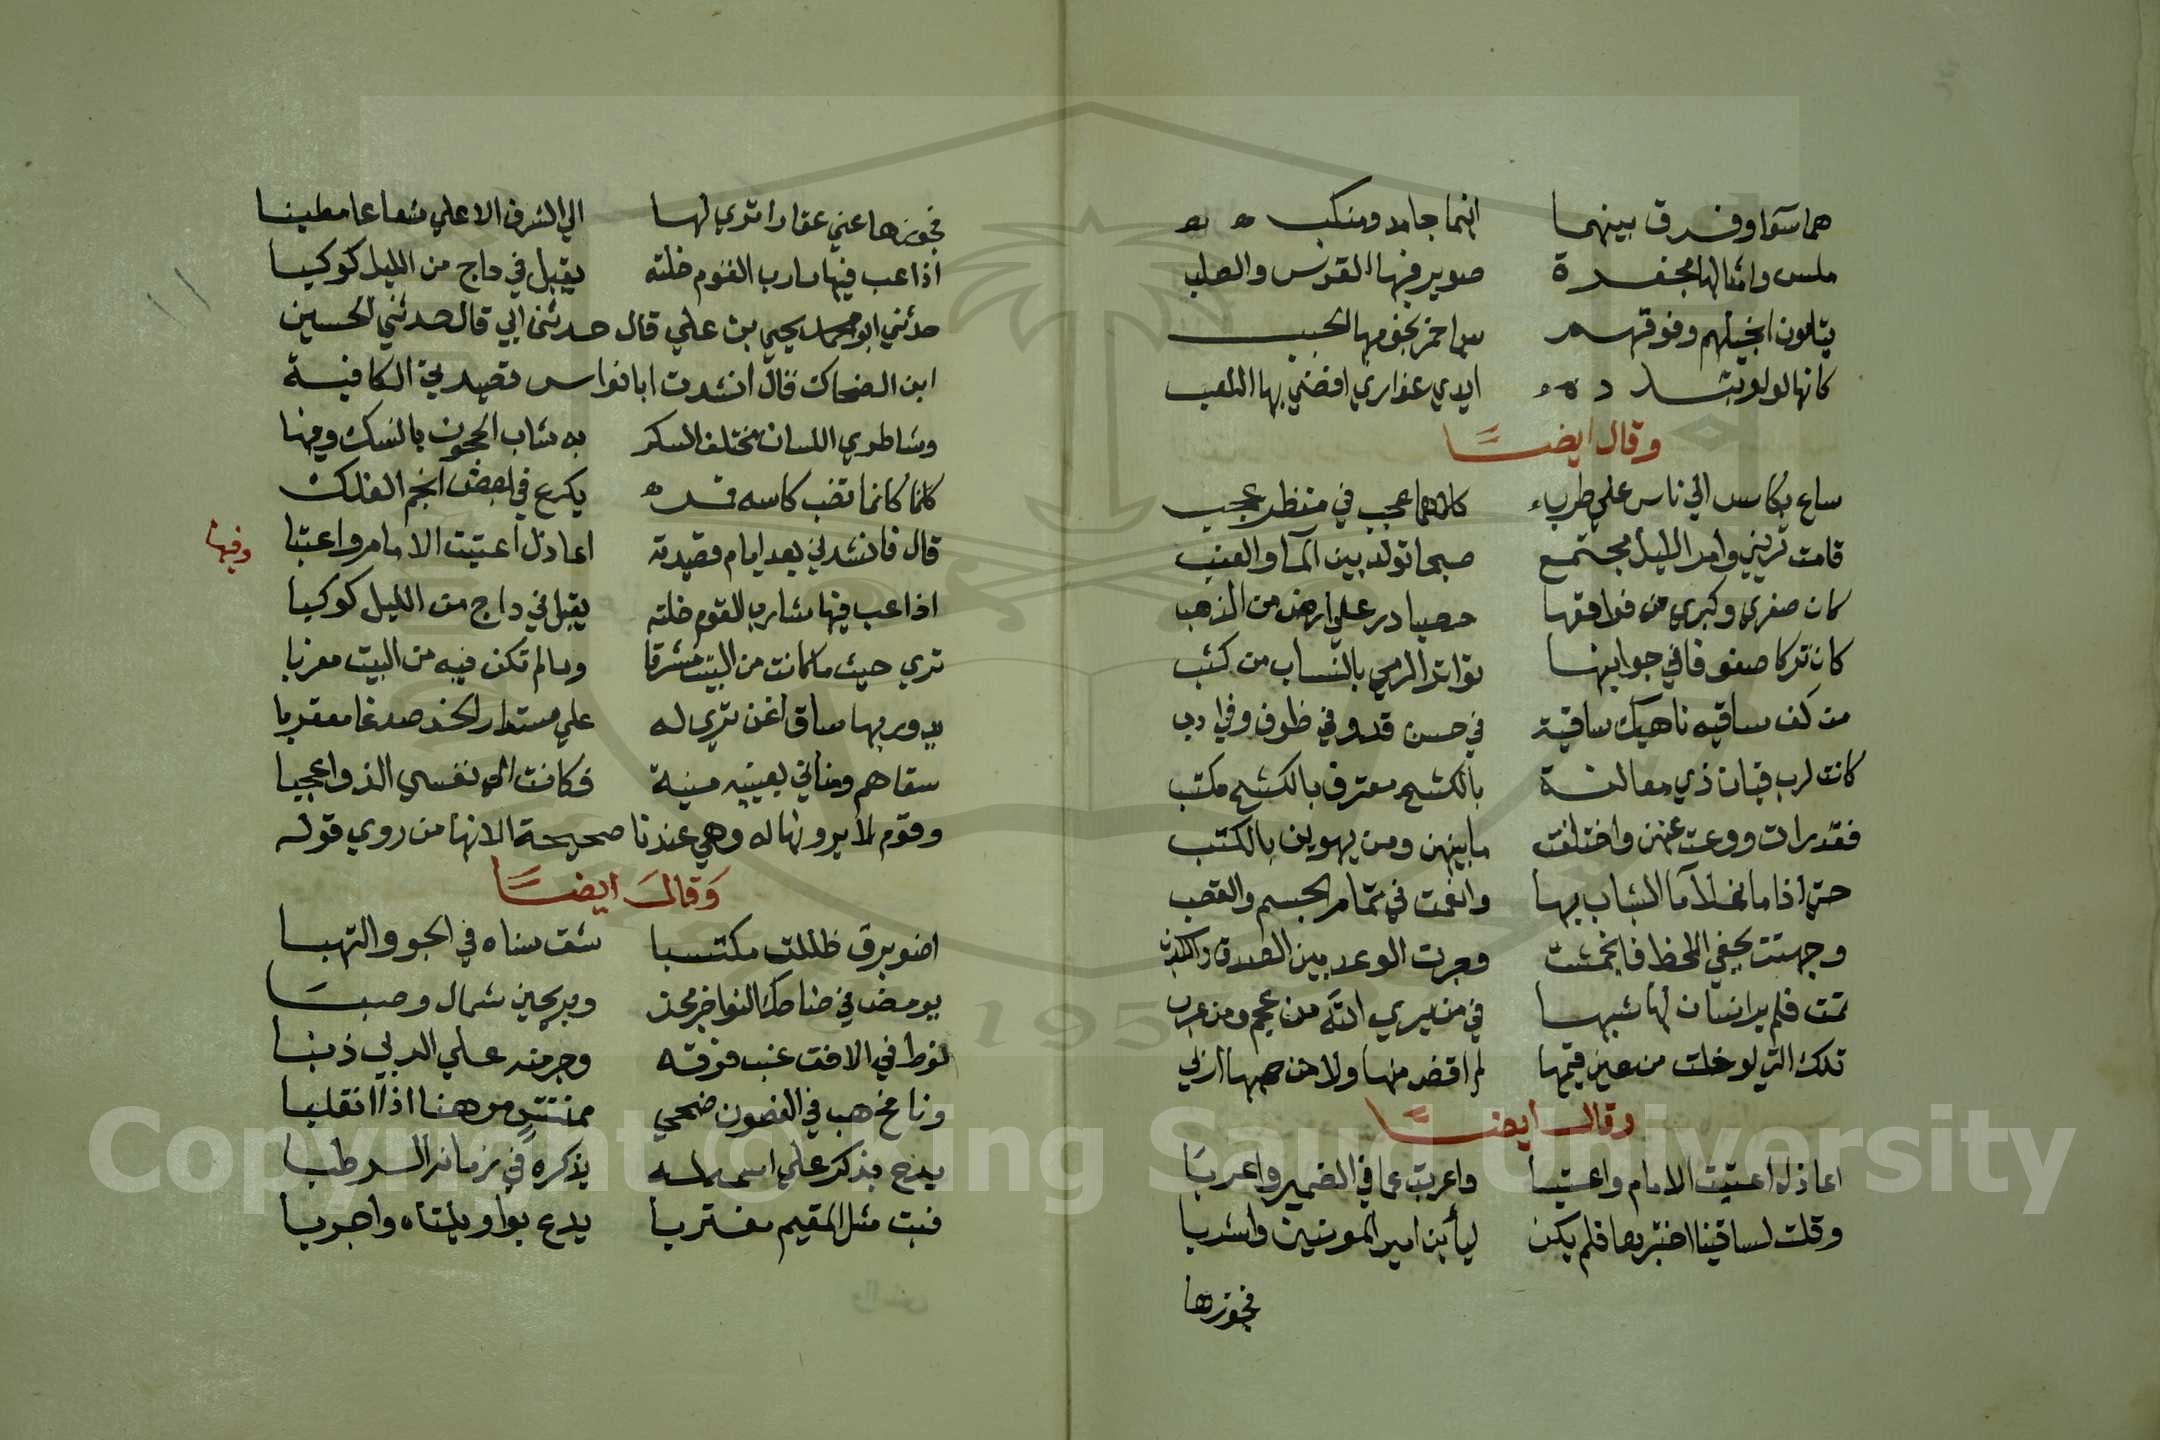 هما سوا وفرق بينهما انهما جامد ومنكب
ملس وامثالها محفرة صوير فيها القوس والصلب
يتلون انجيلهم وفوقهم سما خمر نجومها الحبب
كانها لولو تبدد ايدي عذاري افضي بها اللعب
وقال ايضا
ساع بكاس الي ناس علي طرب كلاهما عجب في منظر عجب
قامت تريني وامر الليل مجتمع صبحا تولد بين الما والعنب
كان صغري وكبري من فواقعها حصبا در علي ارض من الذهب
كان تركا صفوفا في جوانبها تواتر الرمي بالنشاب من كثب
من كف ساقيه ناهيك ساقية في حسن قد وفي ظرف وفي ادب
كانت لرب قيان ذي مغالبة بالكشح محترف بالكشح مكتسب
فقد رات ووعت عنهن واختلفت ما بينهن ومن يهوين بالكتب
حتي اذا ما غلا ما الشباب بها وافعمت في تمام الجسم والقصب
وجمشت بخفي اللحظ فانجمشت وجرت الوعد بين الصدق والكذب
تمت فلم ير انسان لها شبها في من يري الله من عجم ومن عرب
تلك التي لو خلت من عين قيمها لم اقض منها ولا من حبها اربي
وقال ايضا
اعاذل اعتبت الامام واعتبا واعربت عما في الضمير واعربا
وقلت لساقينا اجزها فلم يكن ليأبي امير المومنين واشربا
فجوزها
فجوزها عني عقارا تري لها الي الشرف الاعلي شعاعا مطنبا
اذا عب فيها شارب القوم خلته يقبل في داج من الليل كوكبا
حدثني ابو محمد يحيي بن علي قال حدثنا ابي قال حدثني الحسين
ابن الضحاك قال انشدت ابا نواس قصيدتي الكافية
وشاطري اللسان مختلف السكر به شاب المجون بالنسك ومنها
كانما كانما نصب كاسه قمر يكرع في بعض انجم الفلك
قال فانشدني بعد ايام قصيدته اعاذل اعتبت الامام واعتبا
وفيها
اذا عب فيها شارب القوم خلته يقبل في داج من الليل كوكبا
تري حيث ما كانت من البيت مشرقا وما لم تكن فيه من البيت مغربا
يدور بها ساق اغن تري له علي مستدار الخد صدغا معقربا
سقاهم ومناني بعينيه منية فكانت الي نفسي الذ واعجبا
وقوم لا يرونها له وهي عندنا صحيحة لانها من روي قوله
وقال ايضا
اضو برق ظللت مكتسبا شق سناه في الجو والتهبا
يومض في ضاحك النواجز وبريحين شمال وصبا
لغوط في الافق غب فوقه وجر منه علي الربي ذبنا
ونامخ هب في الغصون ضحي من هنا اذا انقلبا
يدع بذكر علي اسم له يذكره في زمانه الرطبا
فبت مثل المقيم مغتربا يدعو بوا ويلتاه واحربا